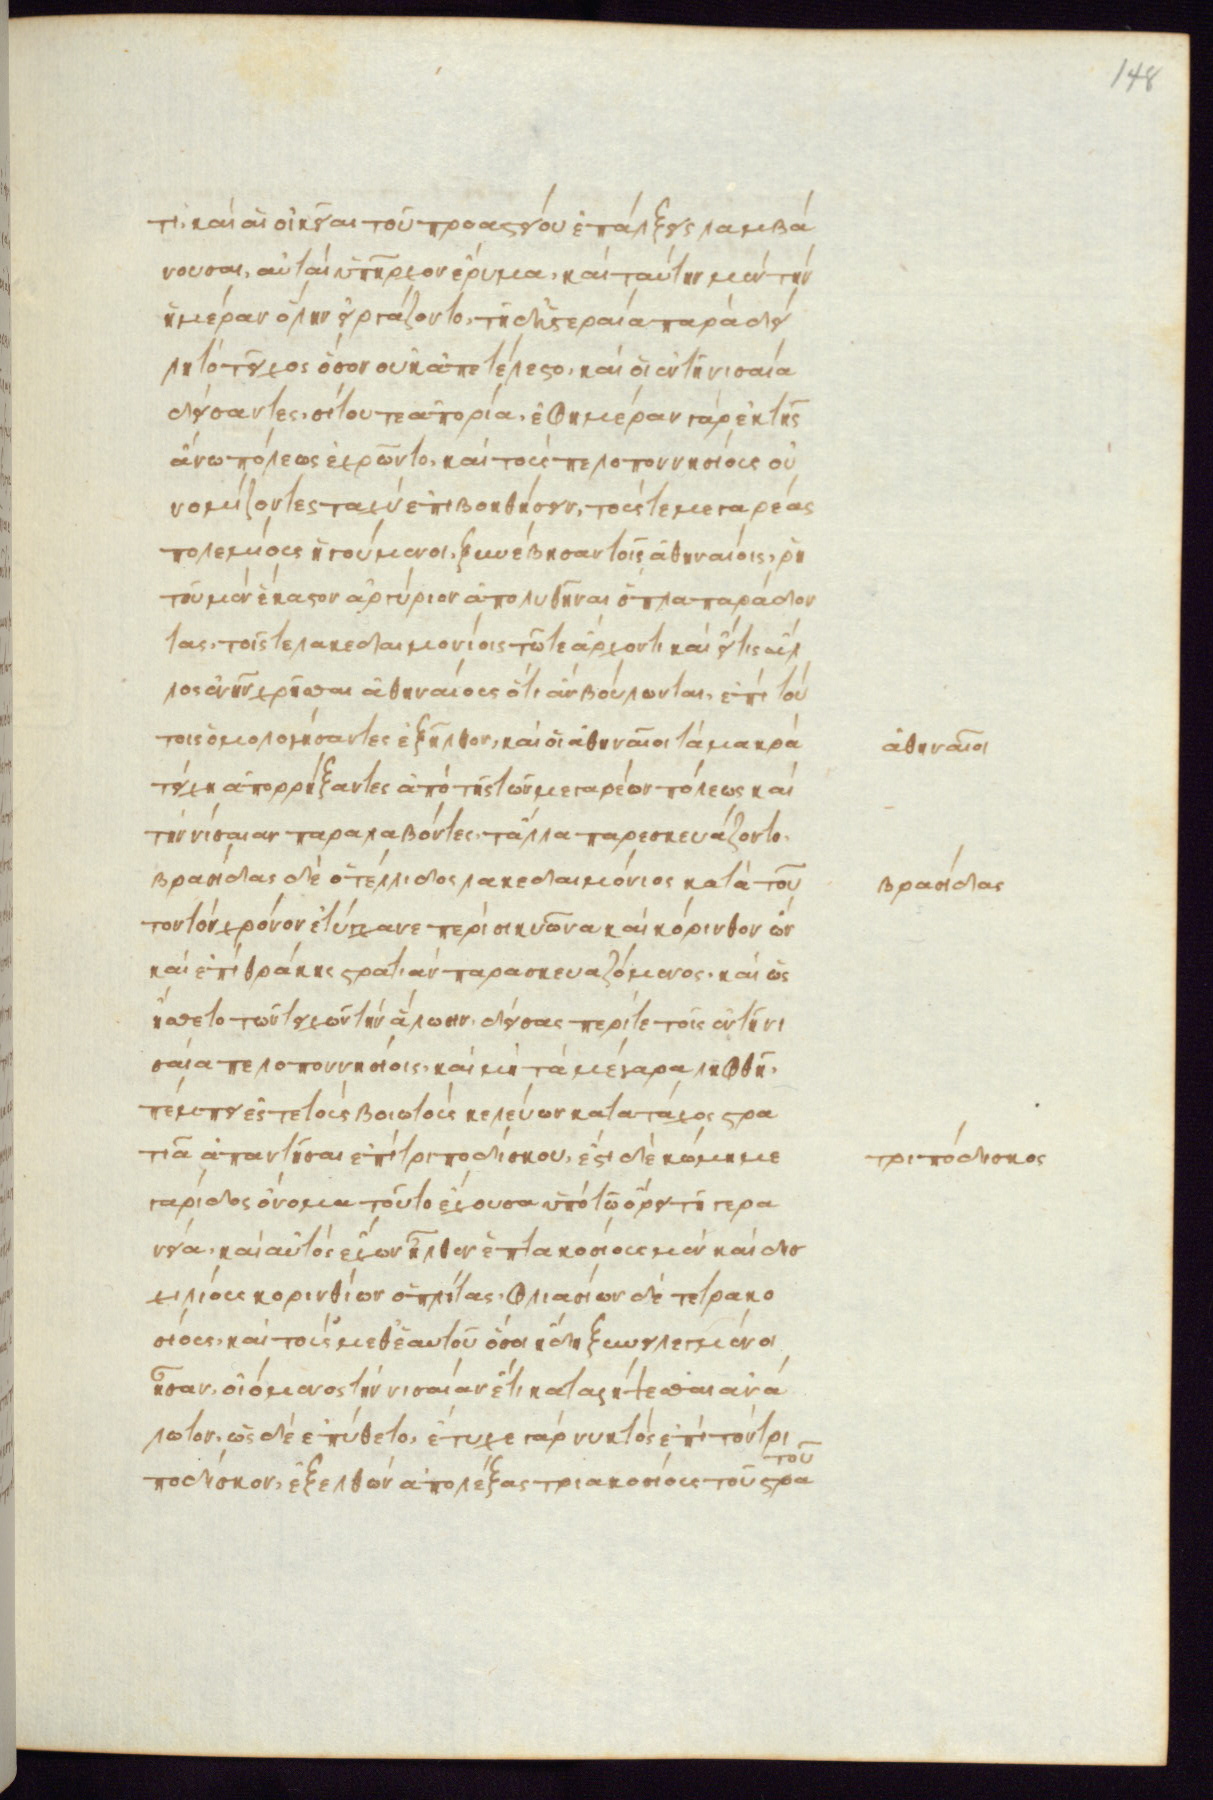 148
τι, καὶ αἱ οἰκίαι τοῦ προαστείου ἐπάλξεις λαμβά
νουσαι, αὐταὶ ὑπῆρχον ἔρυμα, καὶ ταύτην μὲν τὴν
ἡμέραν ὅλην εἰργάζοντο, τῇ δ' ὑστεραία παρὰ δεί
λην τὸ τεῖχος ὅσον οὐκ ἀπετέλεστο, καὶ οἱ ἐν τῆ νισαία
δείσαντες, σίτου τε ἀπορία, ἐφημέραν γὰρ ἐκ τῆς
ἄνω πόλεως ἐχρῶντο, καὶ τοὺς πελοποννησίους οὐ
νομίζοντες ταχὺ ἐπιβοηθήσειν, τούς τε μεγαρέας
πολεμίους ἡγούμενοι, ξυνέβησαν τοῖς ἀθηναίοις, ῥη
τοῦ μὲν ἕκαστον ἀργύριον ἀπολυθῆναι ὅπλα παράδον
τας, τοῖς τε λακεδαιμονίοις τῶ τε ἄρχοντι καὶ εἴ τις ἄλ
λος ἐνῆν χρῆσθαι ἀθηναίους ὅτι ἂν βούλωνται, ἐπὶ τού
τοις ὁμολογήσαντες ἐξῆλθον, καὶ οἱ ἀθηναῖοι τὰ μακρὰ
ἀθηναῖοι
τείχη ἀπορρήξαντες ἀπὸ τῆς τῶν μεγαρέων πόλεως καὶ
τὴν νίσαιαν παραλαβόντες, τἄλλα παρεσκευάζοντο.
βρασίδας δὲ ὁ τέλλιδος λακεδαιμόνιος κατὰ τοῦ
βρασίδας
τον τὸν χρόνον ἐτύγχανε περὶ σικυῶνα καὶ κόρινθον ὢν
καὶ ἐπὶ θράκης στρατιὰν παρασκευαζόμενος, καὶ ὡς
ἤσθετο τῶν τειχῶν τὴν ἅλωσιν, δείσας περί τε τοῖς ἐν τῆ νι
σαία πελοποννησίοις, καὶ μὴ τὰ μέγαρα ληφθῆ,
πέμπει ἔς τε τοὺς βοιωτοὺς κελεύων κατατάχος στρα
τιᾶ ἀπαντῆσαι ἐπὶ τριποδίσκον, ἔστι δὲ κώμη με
τριπόδισκος
γαρίδος ὄνομα τοῦτο ἔχουσα ὑπὸ τῶ ὄρει τῆ γερα
νεία, καὶ αὐτὸς ἔχων ἦλθεν ἑπτακοσίους μὲν καὶ δισ
χιλίους κορινθίων ὁπλίτας, φλιασίων δὲ τετρακο
σίους, καὶ τοὺς μεθ' ἑαυτοῦ ὅσοι ἤδη ξυνειλεγμένοι
ἦσαν, οἰόμενος τὴν νισαίαν ἔτι καταλήψεσθαι ἀνά
λωτον, ὡς δὲ ἐπύθετο, ἔτυχε γὰρ νυκτὸς ἐπὶ τὸν τρι
ποδίσκον, ἐξελθὼν ἀπολέξας τριακοσίους τοῦ στρα
τοῦ